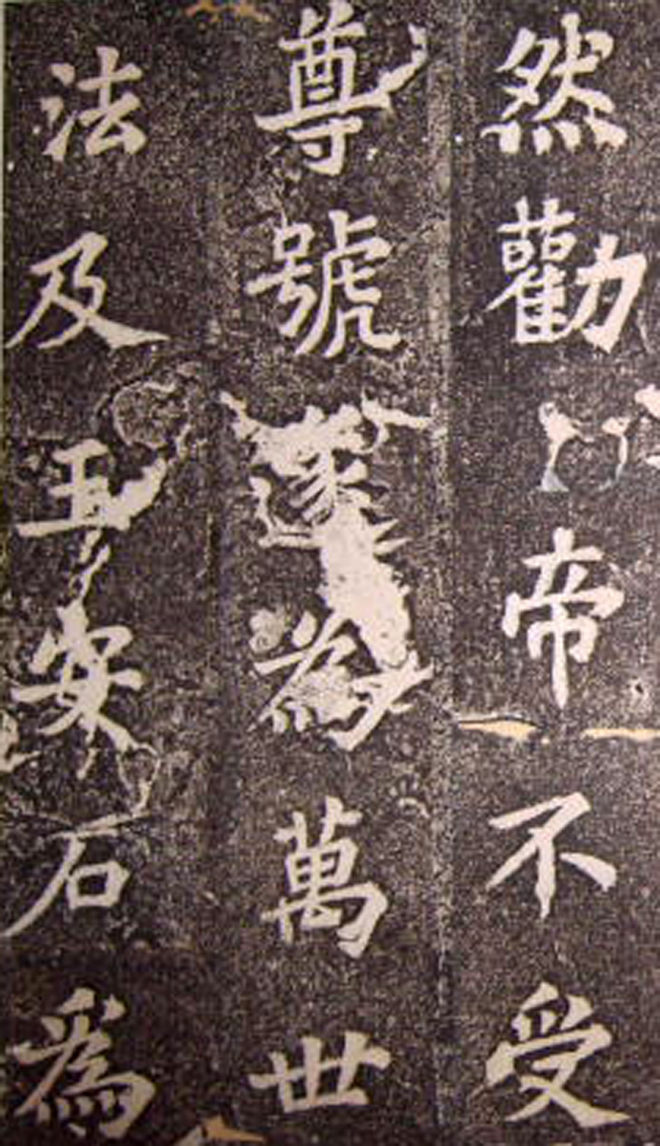 然勸帝不受
尊號遂為萬世
法及王安石爲